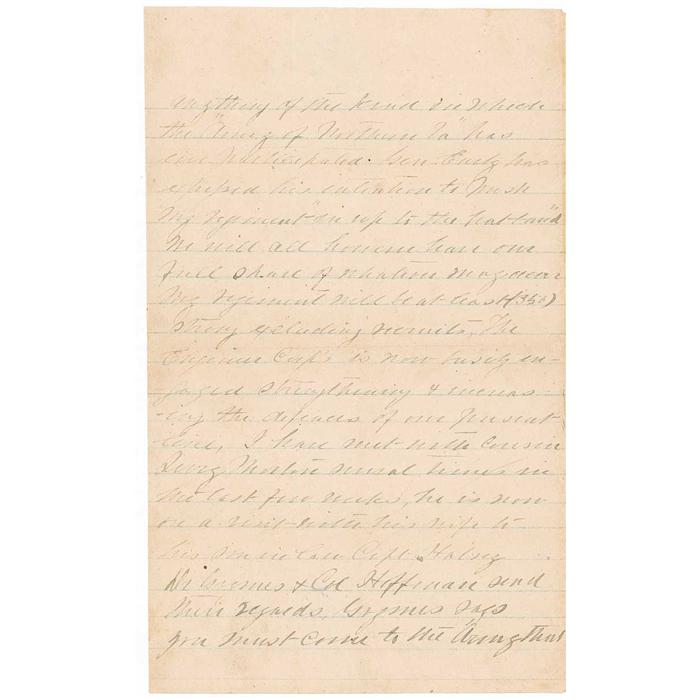 anything of the kind in which
the "Army of Northern Va" has
ever participated. Gen. Early has
his intention to push
My regiment "in up to the hat band"
We will all however have our
full share of whatever may occur
My regiment will be at least (350)
strong excluding recruits, The
Engineer Corps is now busily en-
gaged strengthening & increas-
-ing the defences of our present
line, I have met with Cousin
Morton several times in
the last few weeks, he is now
on a visit with his wife to
his son in law Capt. Halsey
Dr Grymes & Col Hoffman send
their regards, Grymes says
you must come to the "Army that